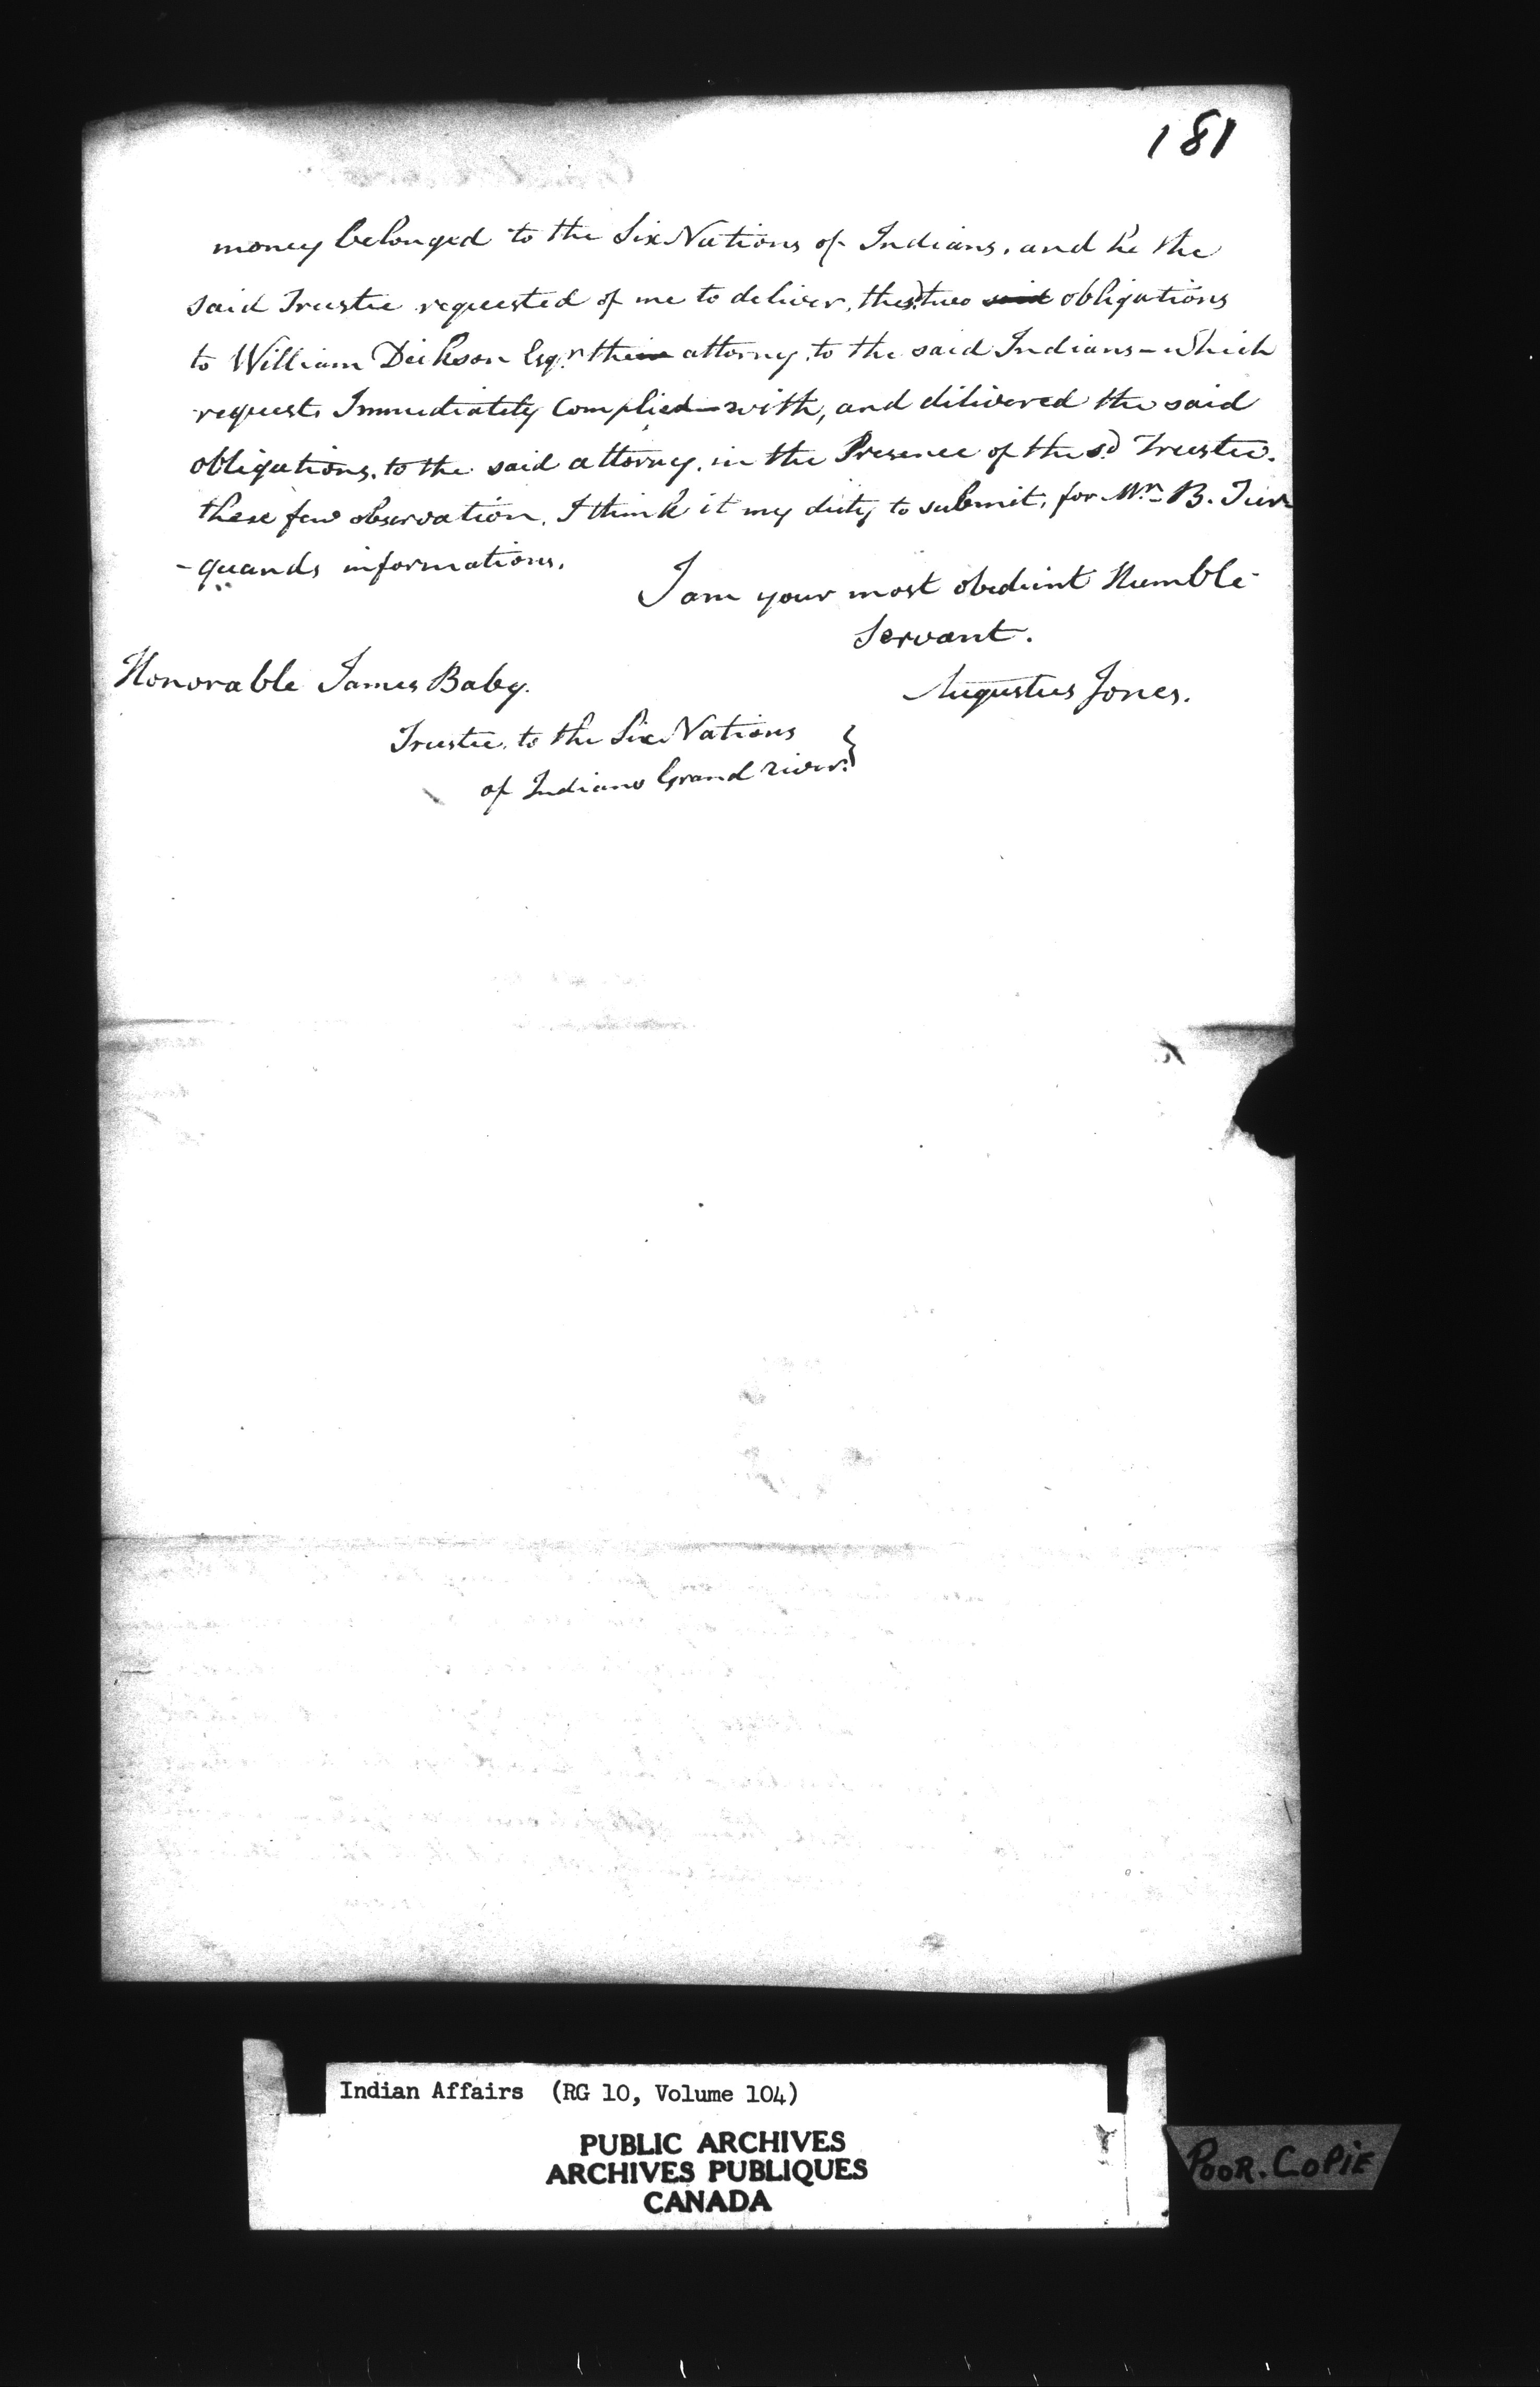 181
money belonged to the Six Nations of Indians, and he the
said Trustee requested of me to deliver, the sd two said obligations
to William Dickson Esqr. their attorney, to the said Indians - which
request, Immediately Complied with, and dilivered the said
obligations, to the said attorney, in the Presence of the sd Trustee.
these few observation, I think it my duty to submit, for Mr. B. Tur
-quands informations.
I am your most obedient Humble
Servant.
Augustus Jones.
Honorable James Baby.
Trustee, to the Six Nations
of Indians Grand river. }
Indian Affairs (RG 10, Volume 104)
PUBLIC ARCHIVES
ARCHIVES PUBLIQUES
CANADA
POOR. COPIE